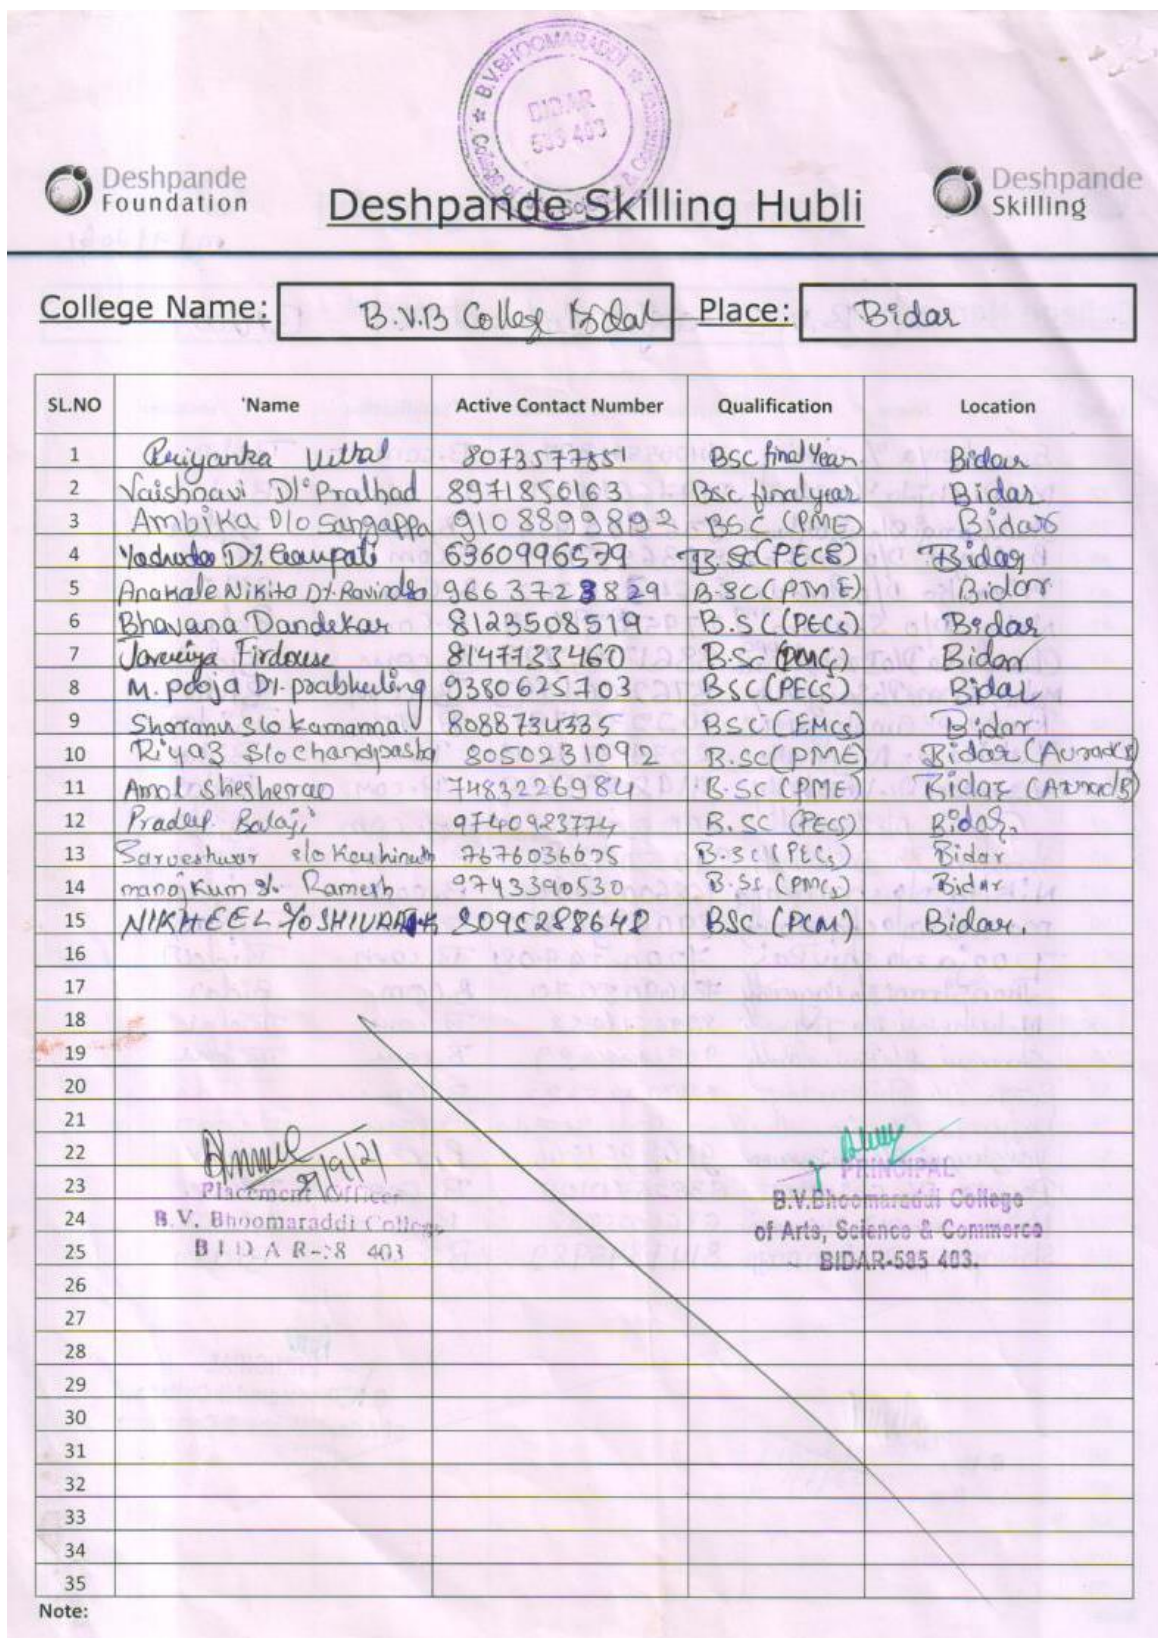 B.V.BHOOMARADDI
BIDAR
585 403
Deshpande Foundation
Deshpande Skilling Hubli
Deshpande Skilling
College Name: B.V.B College Bidar Place: Bidar
SL.NO Name Active Contact Number Qualification Location
1 Priyanka Vittal 8073577851 BSC final Year Bidar
2 Vaishnavi D/o Pralhad 8971856163 BSc final year Bidar
3 Ambika D/o Sangappa 9108899892 BSC (PME) Bidar
4 6360996579 B.Sc (PECS) Bidar
5 Anakale Nikita D/. Ravindra 9663723829 B.SC (PME) Bidar
6 Bhavana Dandekar 8123508519 B.SC (PECs) Bidar
7 Javeriya Firdouse 8147733460 B.Sc (PMCs) Bidar
8 M. pooja D/. prabhuling 9380625703 BSC (PECS) Bidar
9 Sharanu S/o Kamanna 8088734335 BSC (EMCs) Bidar
10 Riyaz S/o chandpasha 8050231092 B.SC (PME) Bidar (Aurad B)
11 Amol Shesherao 7483226984 B.SC (PME) Bidar (Aurad B)
12 Pradeep Balaji 9740923774 B.SC (PECS) Bidar.
13 Sarveshwar s/o Kashinath 7676036695 B.SC (PECs) Bidar
14 manojkum S/. Ramesh 9743390530 B.Sc (PMCs) Bidar
15 NIKHEEL S/O SHIVRAJ 8095288648 BSC (PCM) Bidar.
16
17
18
19
20
21
22
23
24
25
26
27
28
29
30
31
32
33
34
35
9/9/21
Placement Officer
B.V. Bhoomaraddi College
BIDAR-58 403
PRINCIPAL
B.V.Bhoomaraddi College
of Arts, Science & Commerce
BIDAR-585 403.
Note: